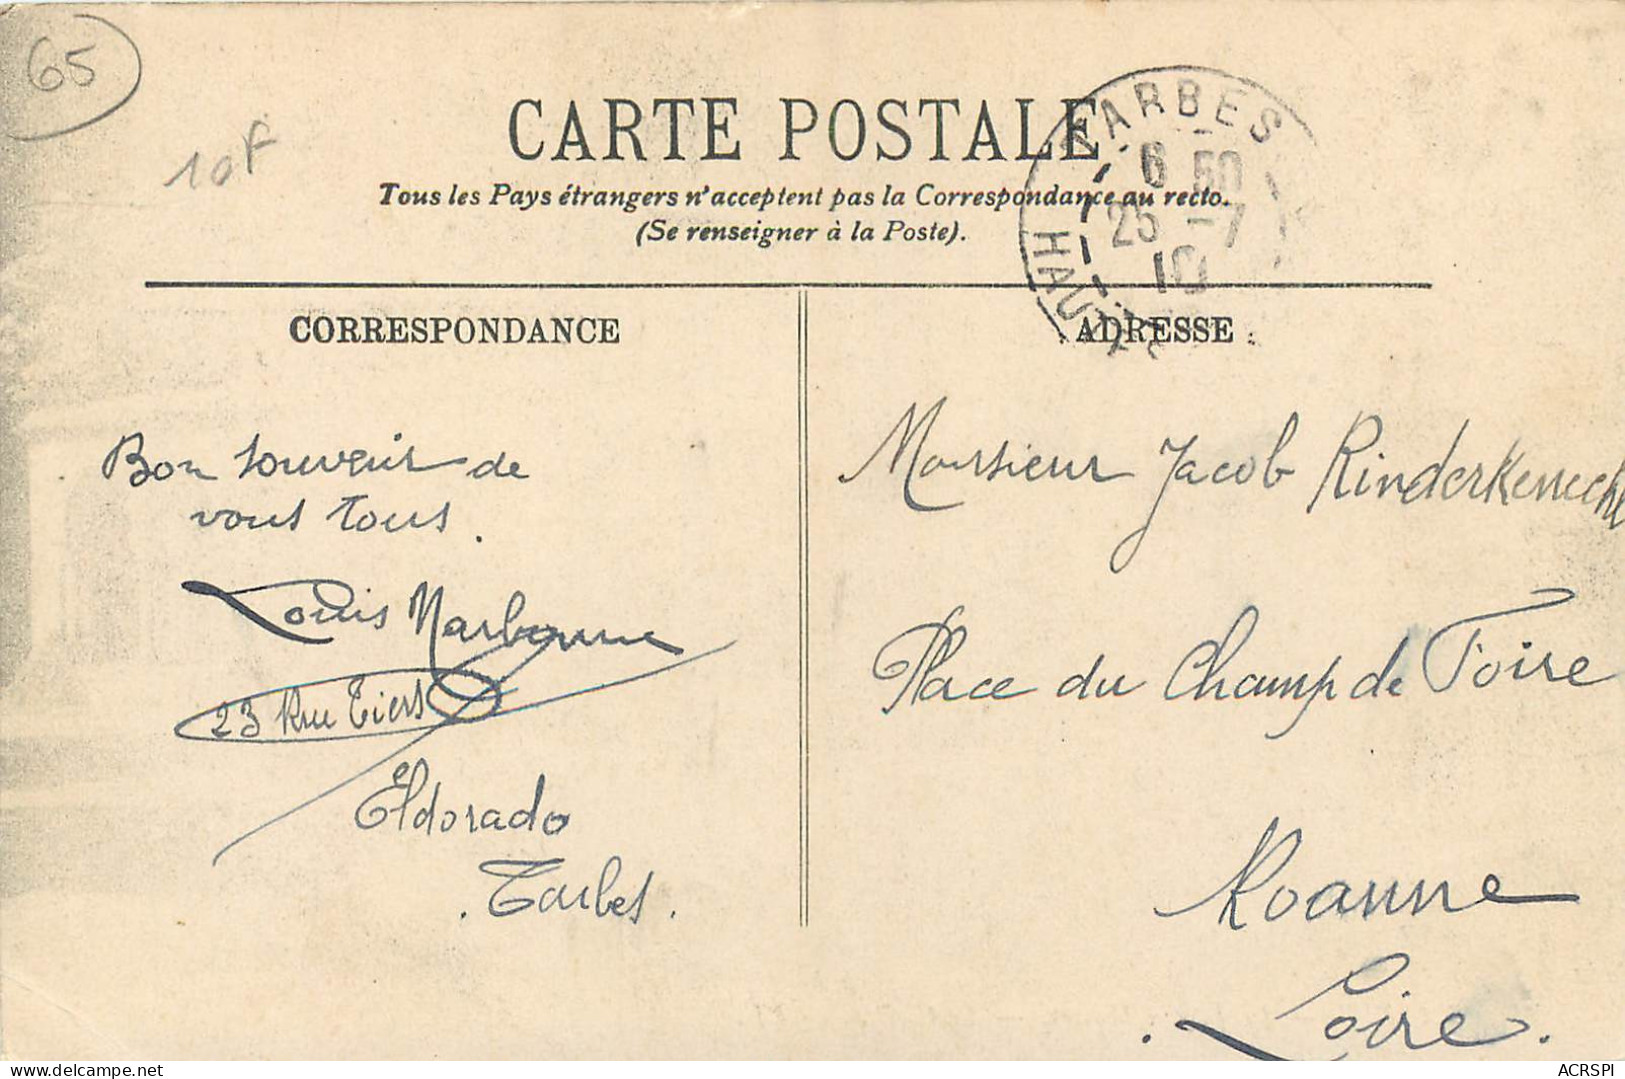 65
10F
CARTE POSTALE
Tous les Pays étrangers n'acceptent pas la Correspondance au recto.
(Se renseigner à la Poste).
TARBES
6 50
25 - 7
10
HAUTES
CORRESPONDANCE
ADRESSE
Bon souvenir de
vous tous.
Louis Narbonne
23 Rue Tiers
Eldorado
. Tarbes .
Monsieur Jacob Rinderkenecht
Place du Champ de Foire
Roanne
. Loire .
ACRSPI